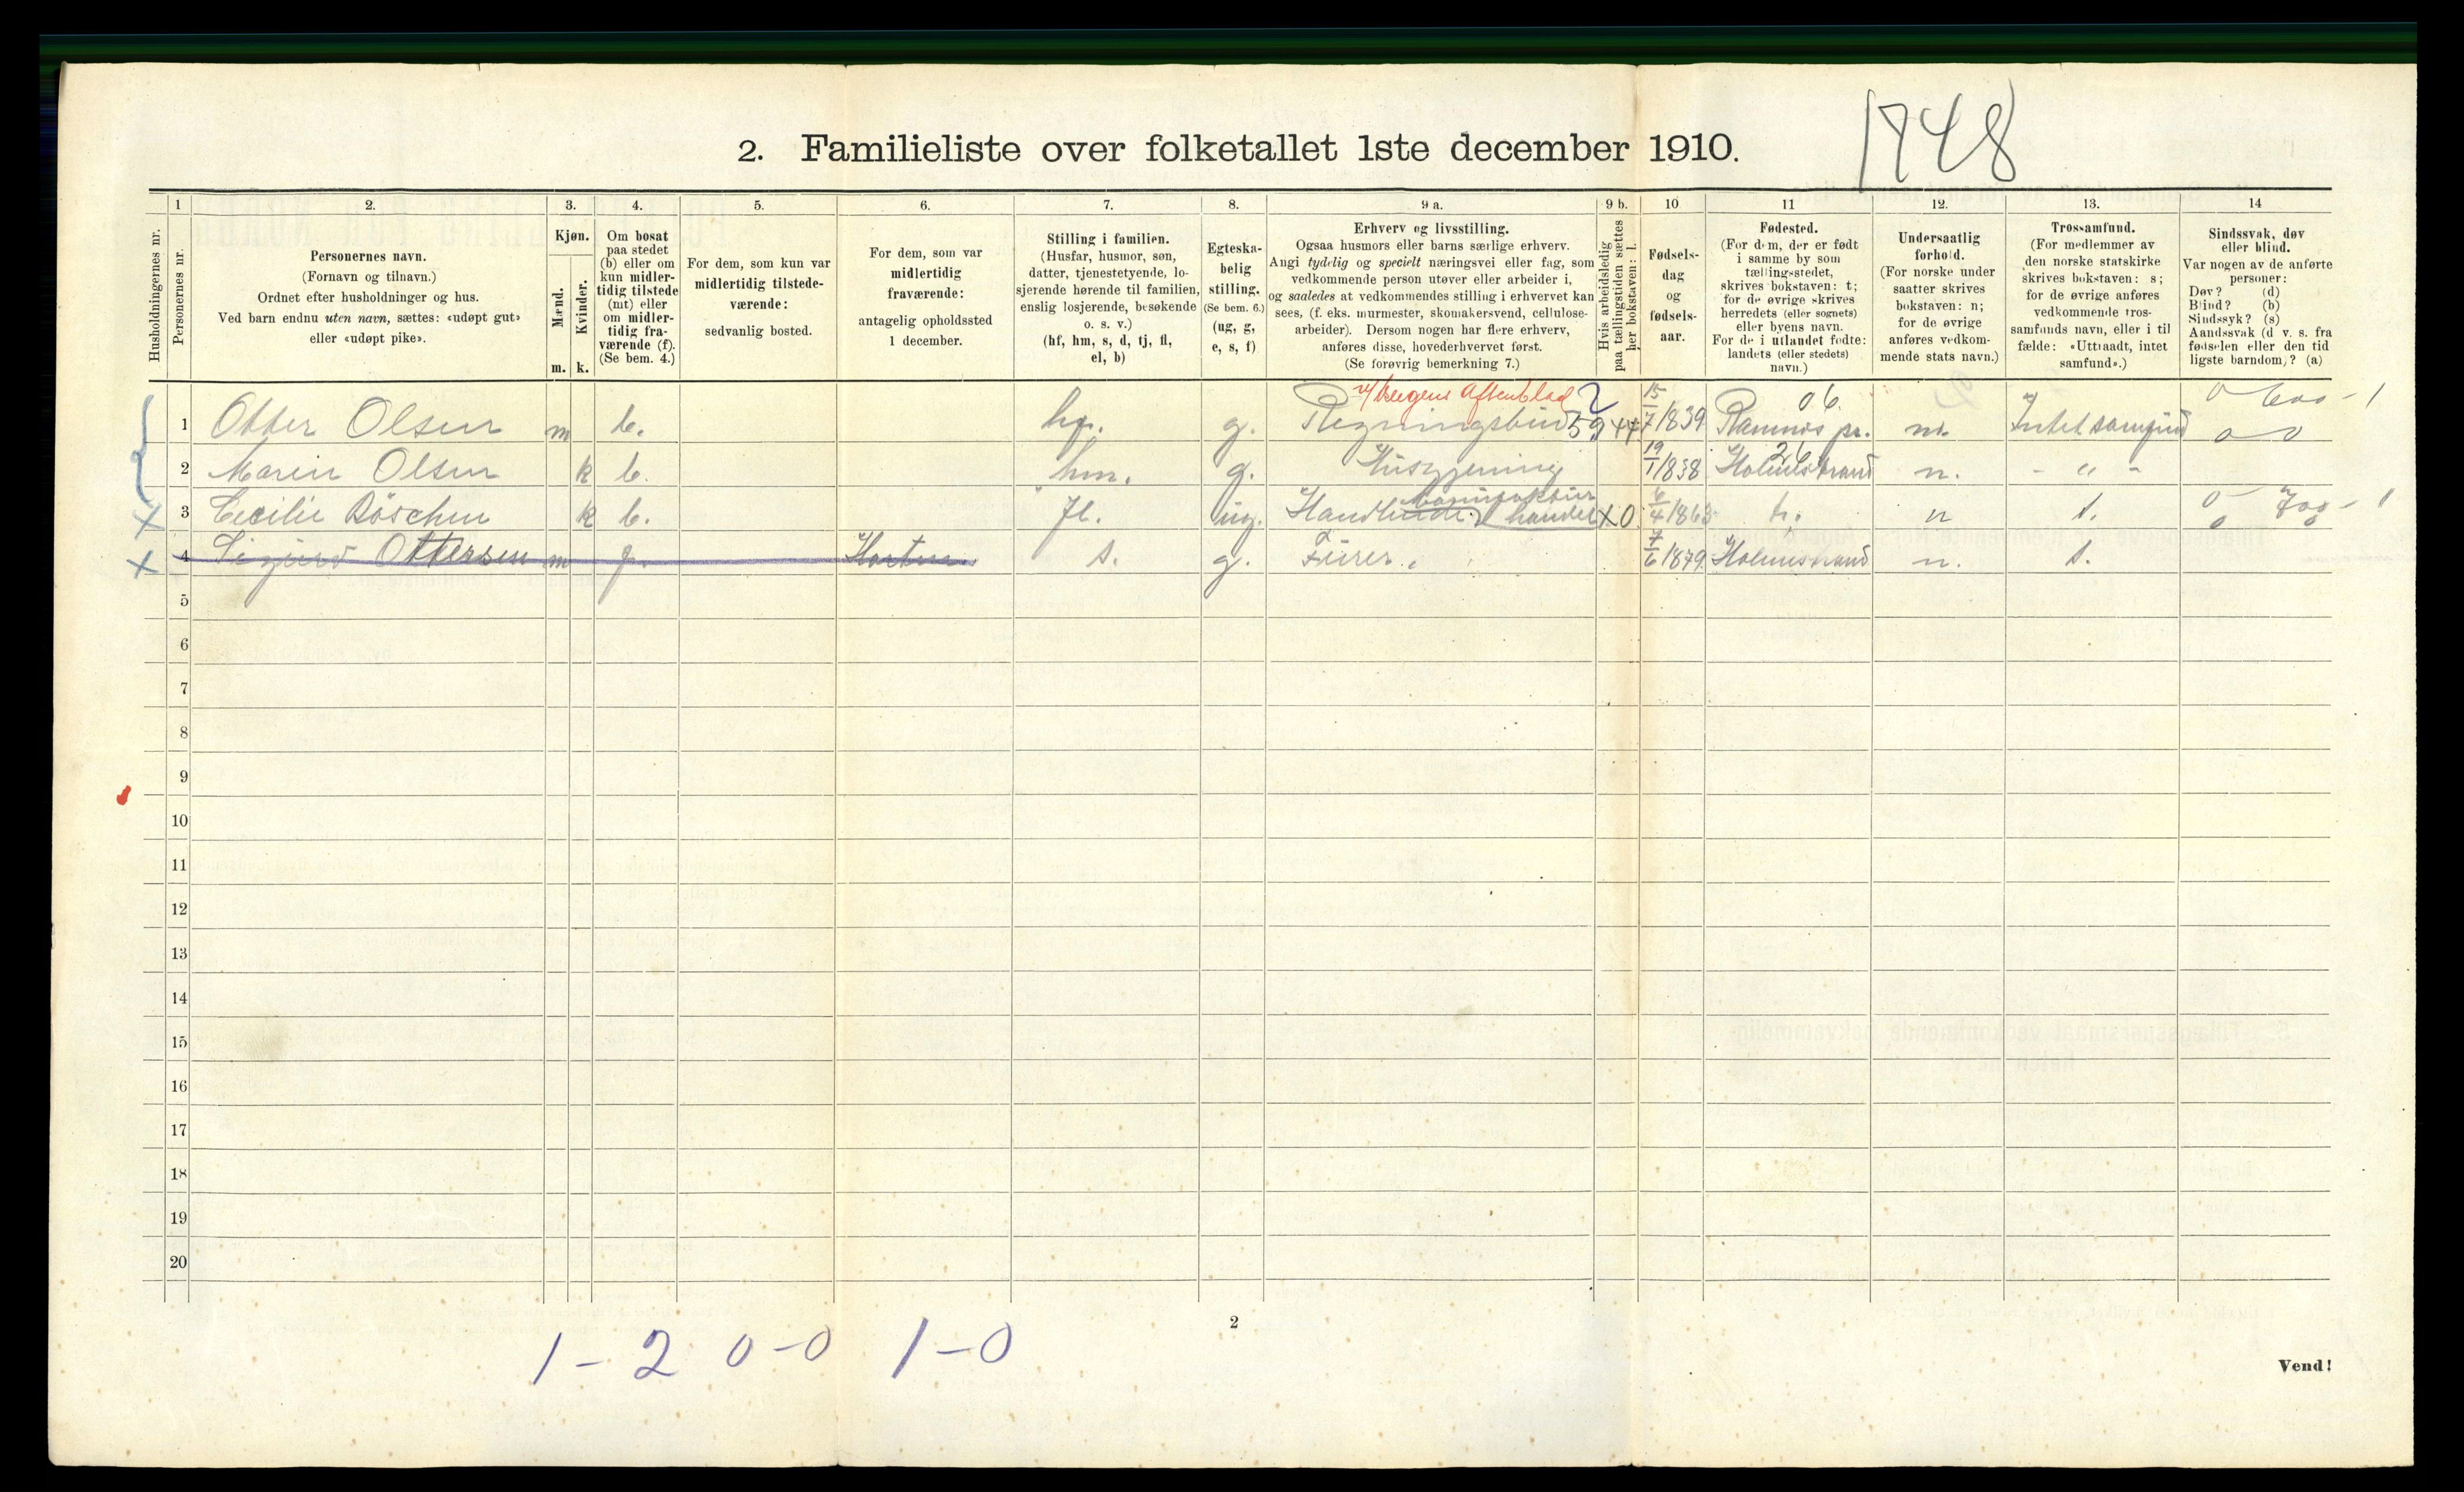 1748
2. Familieliste over folketallet 1ste december 1910.
1 2. 3. 4. 5. 6. 7. 8. 9 a. 9 b. 10 11 12. 13. 14
Husholdningernes nr.
Personernes nr.
Personernes navn.
(Fornavn og tilnavn.)
Ordnet efter husholdninger og hus.
Ved barn endnu uten navn, sættes: «udøpt gut»
eller «udøpt pike».
Kjøn.
Mænd.
Kvinder.
m. k.
Om bosat
paa stedet
(b) eller om
kun midler-
tidig tilstede
(mt) eller
om midler-
tidig fra-
værende (f).
(Se bem. 4.)
For dem, som kun var
midlertidig tilstede-
værende:
sedvanlig bosted.
For dem, som var
midlertidig
fraværende:
antagelig opholdssted
1 december.
Stilling i familien.
(Husfar, husmor, søn,
datter, tjenestetyende, lo-
sjerende hørende til familien,
enslig losjerende, besøkende
o. s. v.)
(hf, hm, s, d, tj, fl,
el, b)
Egteska-
belig
stilling.
(Se bem. 6.)
(ug, g,
e, s, f)
Erhverv og livsstilling.
Ogsaa husmors eller barns særlige erhverv.
Angi tydelig og specielt næringsvei eller fag, som
vedkommende person utøver eller arbeider i,
og saaledes at vedkommendes stilling i erhvervet kan
sees, (f. eks. murmester, skomakersvend, cellulose-
arbeider). Dersom nogen har flere erhverv,
anføres disse, hovederhvervet først.
(Se forøvrig bemerkning 7.)
Hvis arbeidsledig
paa tællingstiden sættes
her bokstaven: l.
Fødsels-
dag
og
fødsels-
aar.
Fødested.
(For dem, der er født
i samme by som
tællingsstedet,
skrives bokstaven: t;
for de øvrige skrives
herredets (eller sognets)
eller byens navn.
For de i utlandet fødte:
landets (eller stedets)
navn.)
Undersaatlig
forhold.
(For norske under
saatter skrives
bokstaven: n;
for de øvrige
anføres vedkom-
mende stats navn.)
Trossamfund.
(For medlemmer av
den norske statskirke
skrives bokstaven: s;
for de øvrige anføres
vedkommende tros-
samfunds navn, eller i til
fælde: «Uttraadt, intet
samfund».)
Sindssvak, døv
eller blind.
Var nogen av de anførte
personer:
Døv? (d)
Blind? (b)
Sindssyk? (s)
Aandssvak (d v. s. fra
fødselen eller den tid
ligste barndom)? (a)
v/ Bergens Aftenblad 2 06.
1 Otter Olsen m b. hf. g. Regningsbud 59 44 15/7 1839 Ramnes pr. n. Intet samfund
2 Maren Olsen k b. hm. g. Husgjerning 19/1 1838 Holmestrand n. - „ -
3 Cecilie Böschen k b. fl. ug. Handlende manufaktur handel X0 6/4 1863 t. n s.
4 Sigurd Ottersen m f. Horten s. g. Fürer. 7/6 1879 Holmestrand n. s.
5
6
7
8
9
10
11
12
13
14
15
16
17
18
19
20
2
1 - 2 0 - 0 1 - 0
Vend!